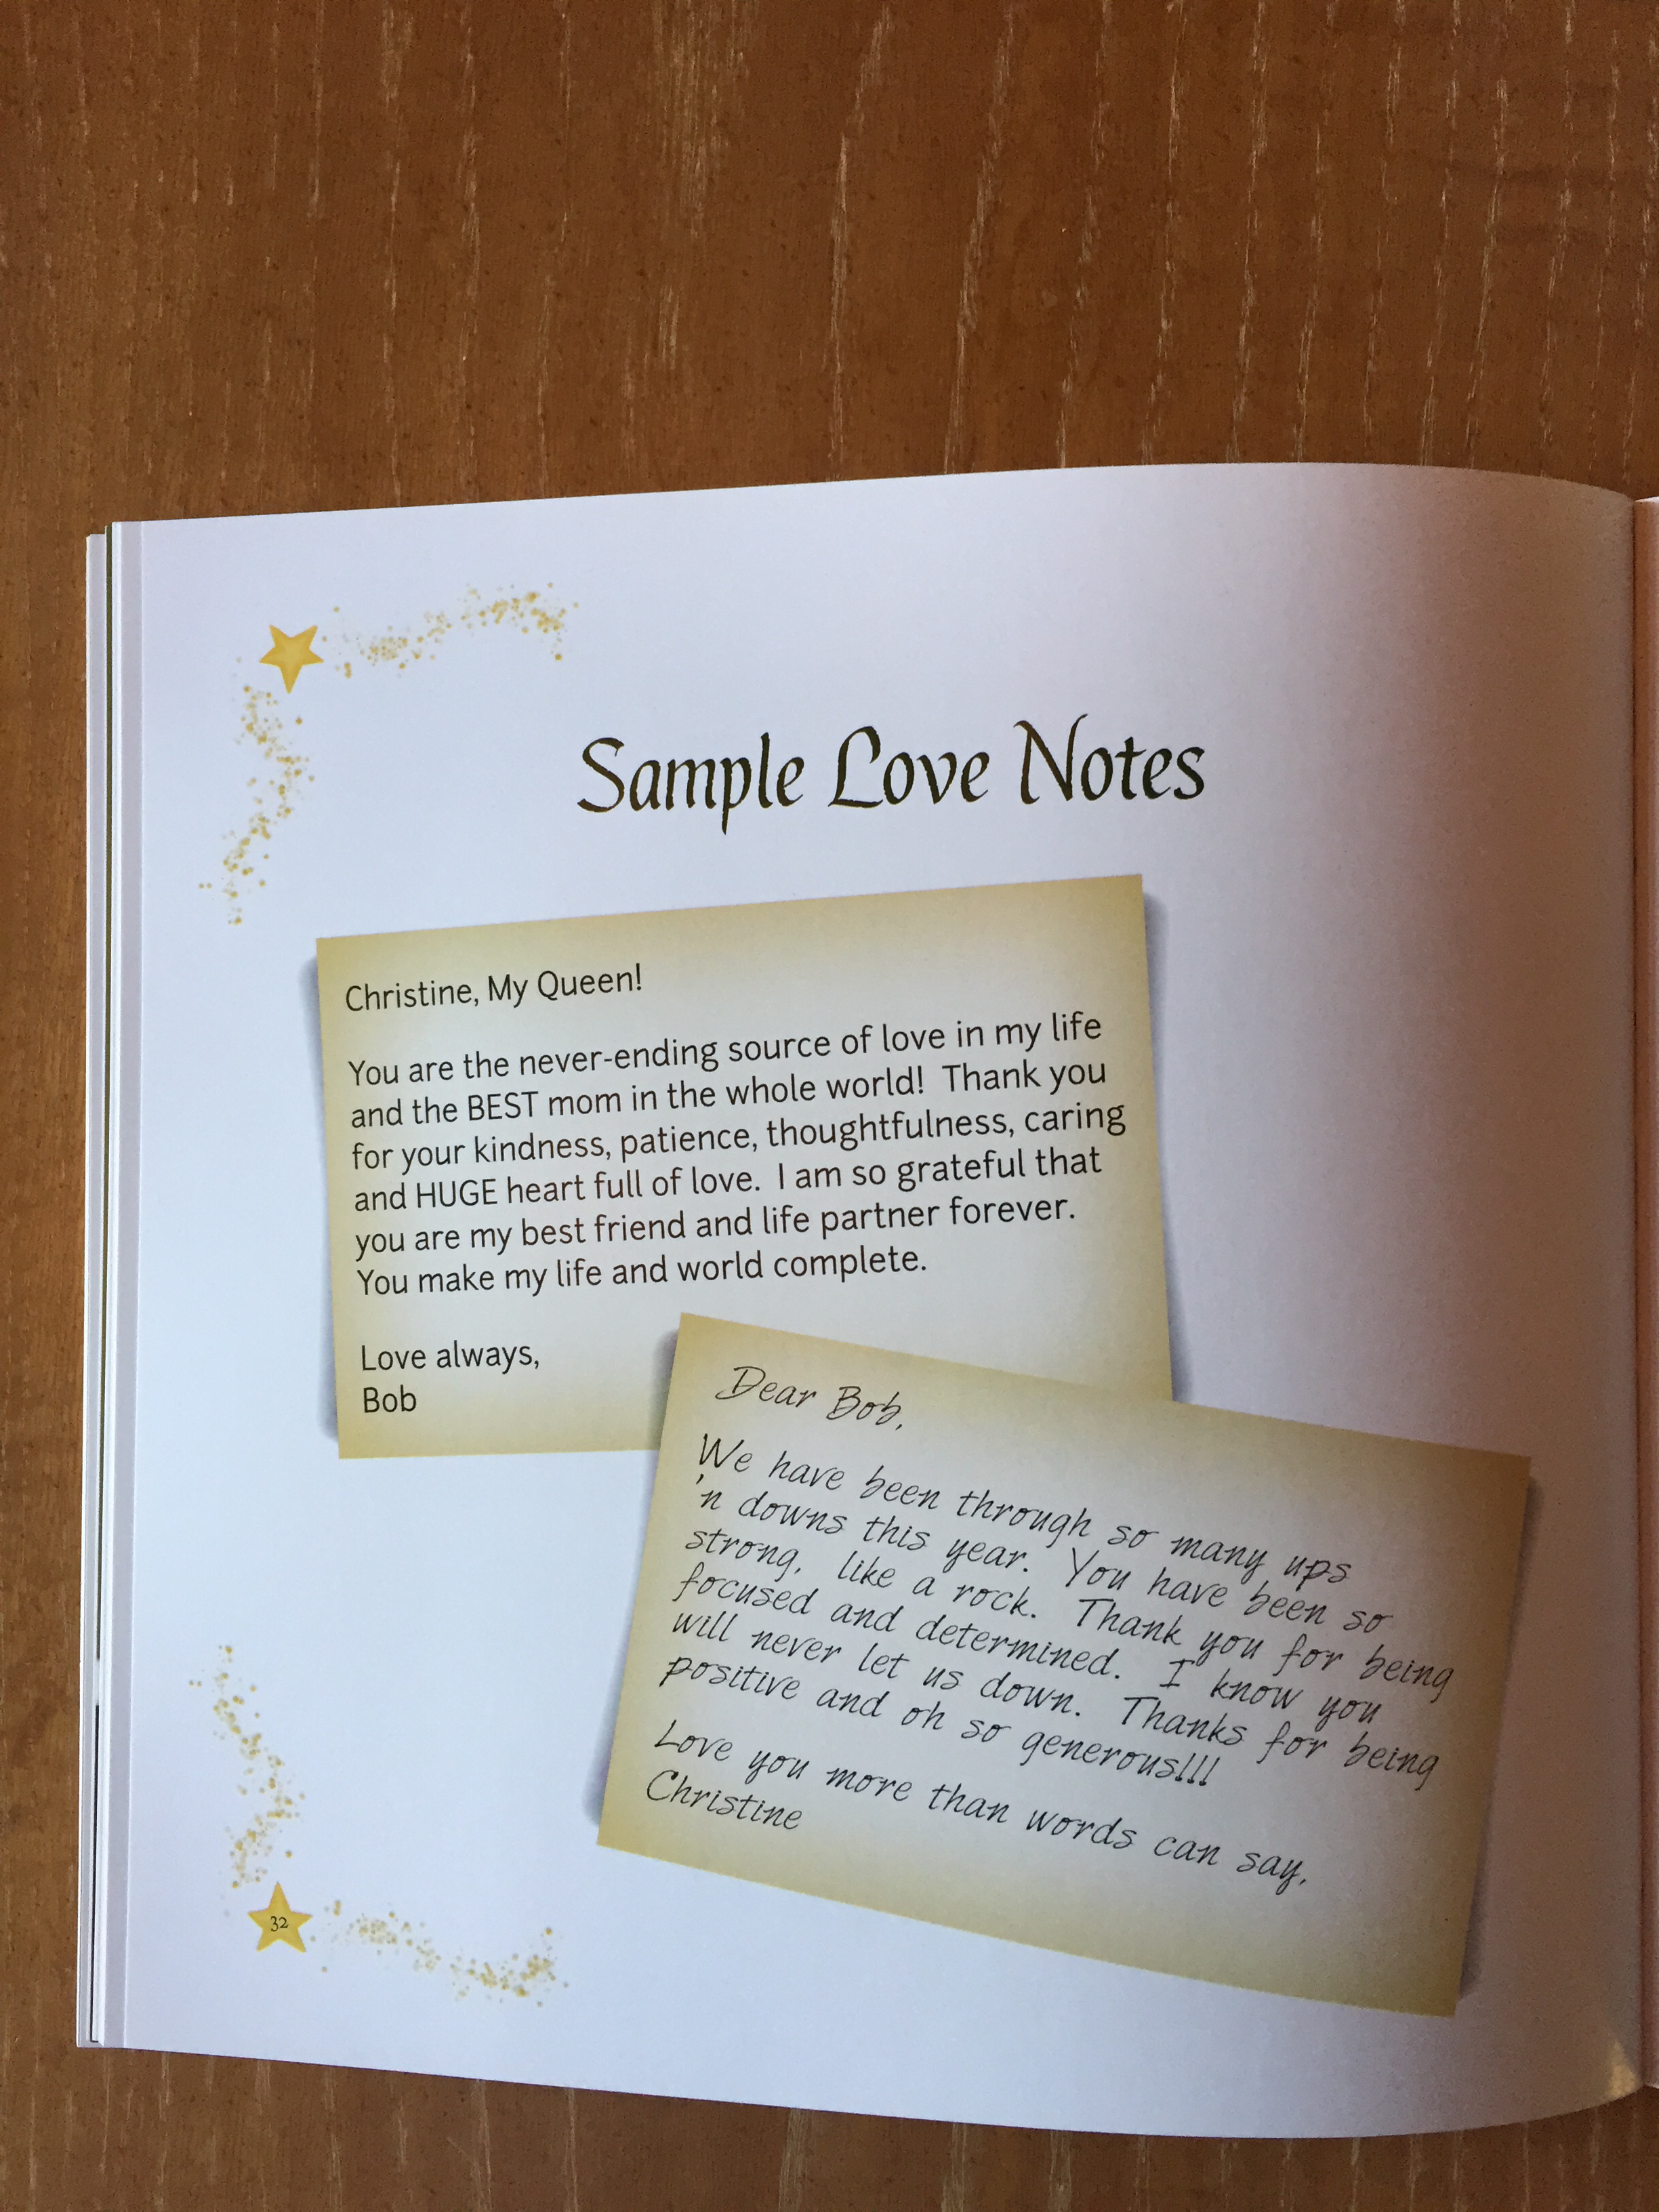 Sample Love Notes
Christine, My Queen!
You are the never-ending source of love in my life
and the BEST mom in the whole world!  Thank you
for your kindness, patience, thoughtfulness, caring
and HUGE heart full of love.  I am so grateful that
you are my best friend and life partner forever.
You make my life and world complete.
Love always,
Bob
Dear Bob,
We have been through so many ups
'n downs this year.  You have been so
strong, like a rock.  Thank you for being
focused and determined.  I know you
will never let us down.  Thanks for being
positive and oh so generous!!!
Love you more than words can say,
Christine
32